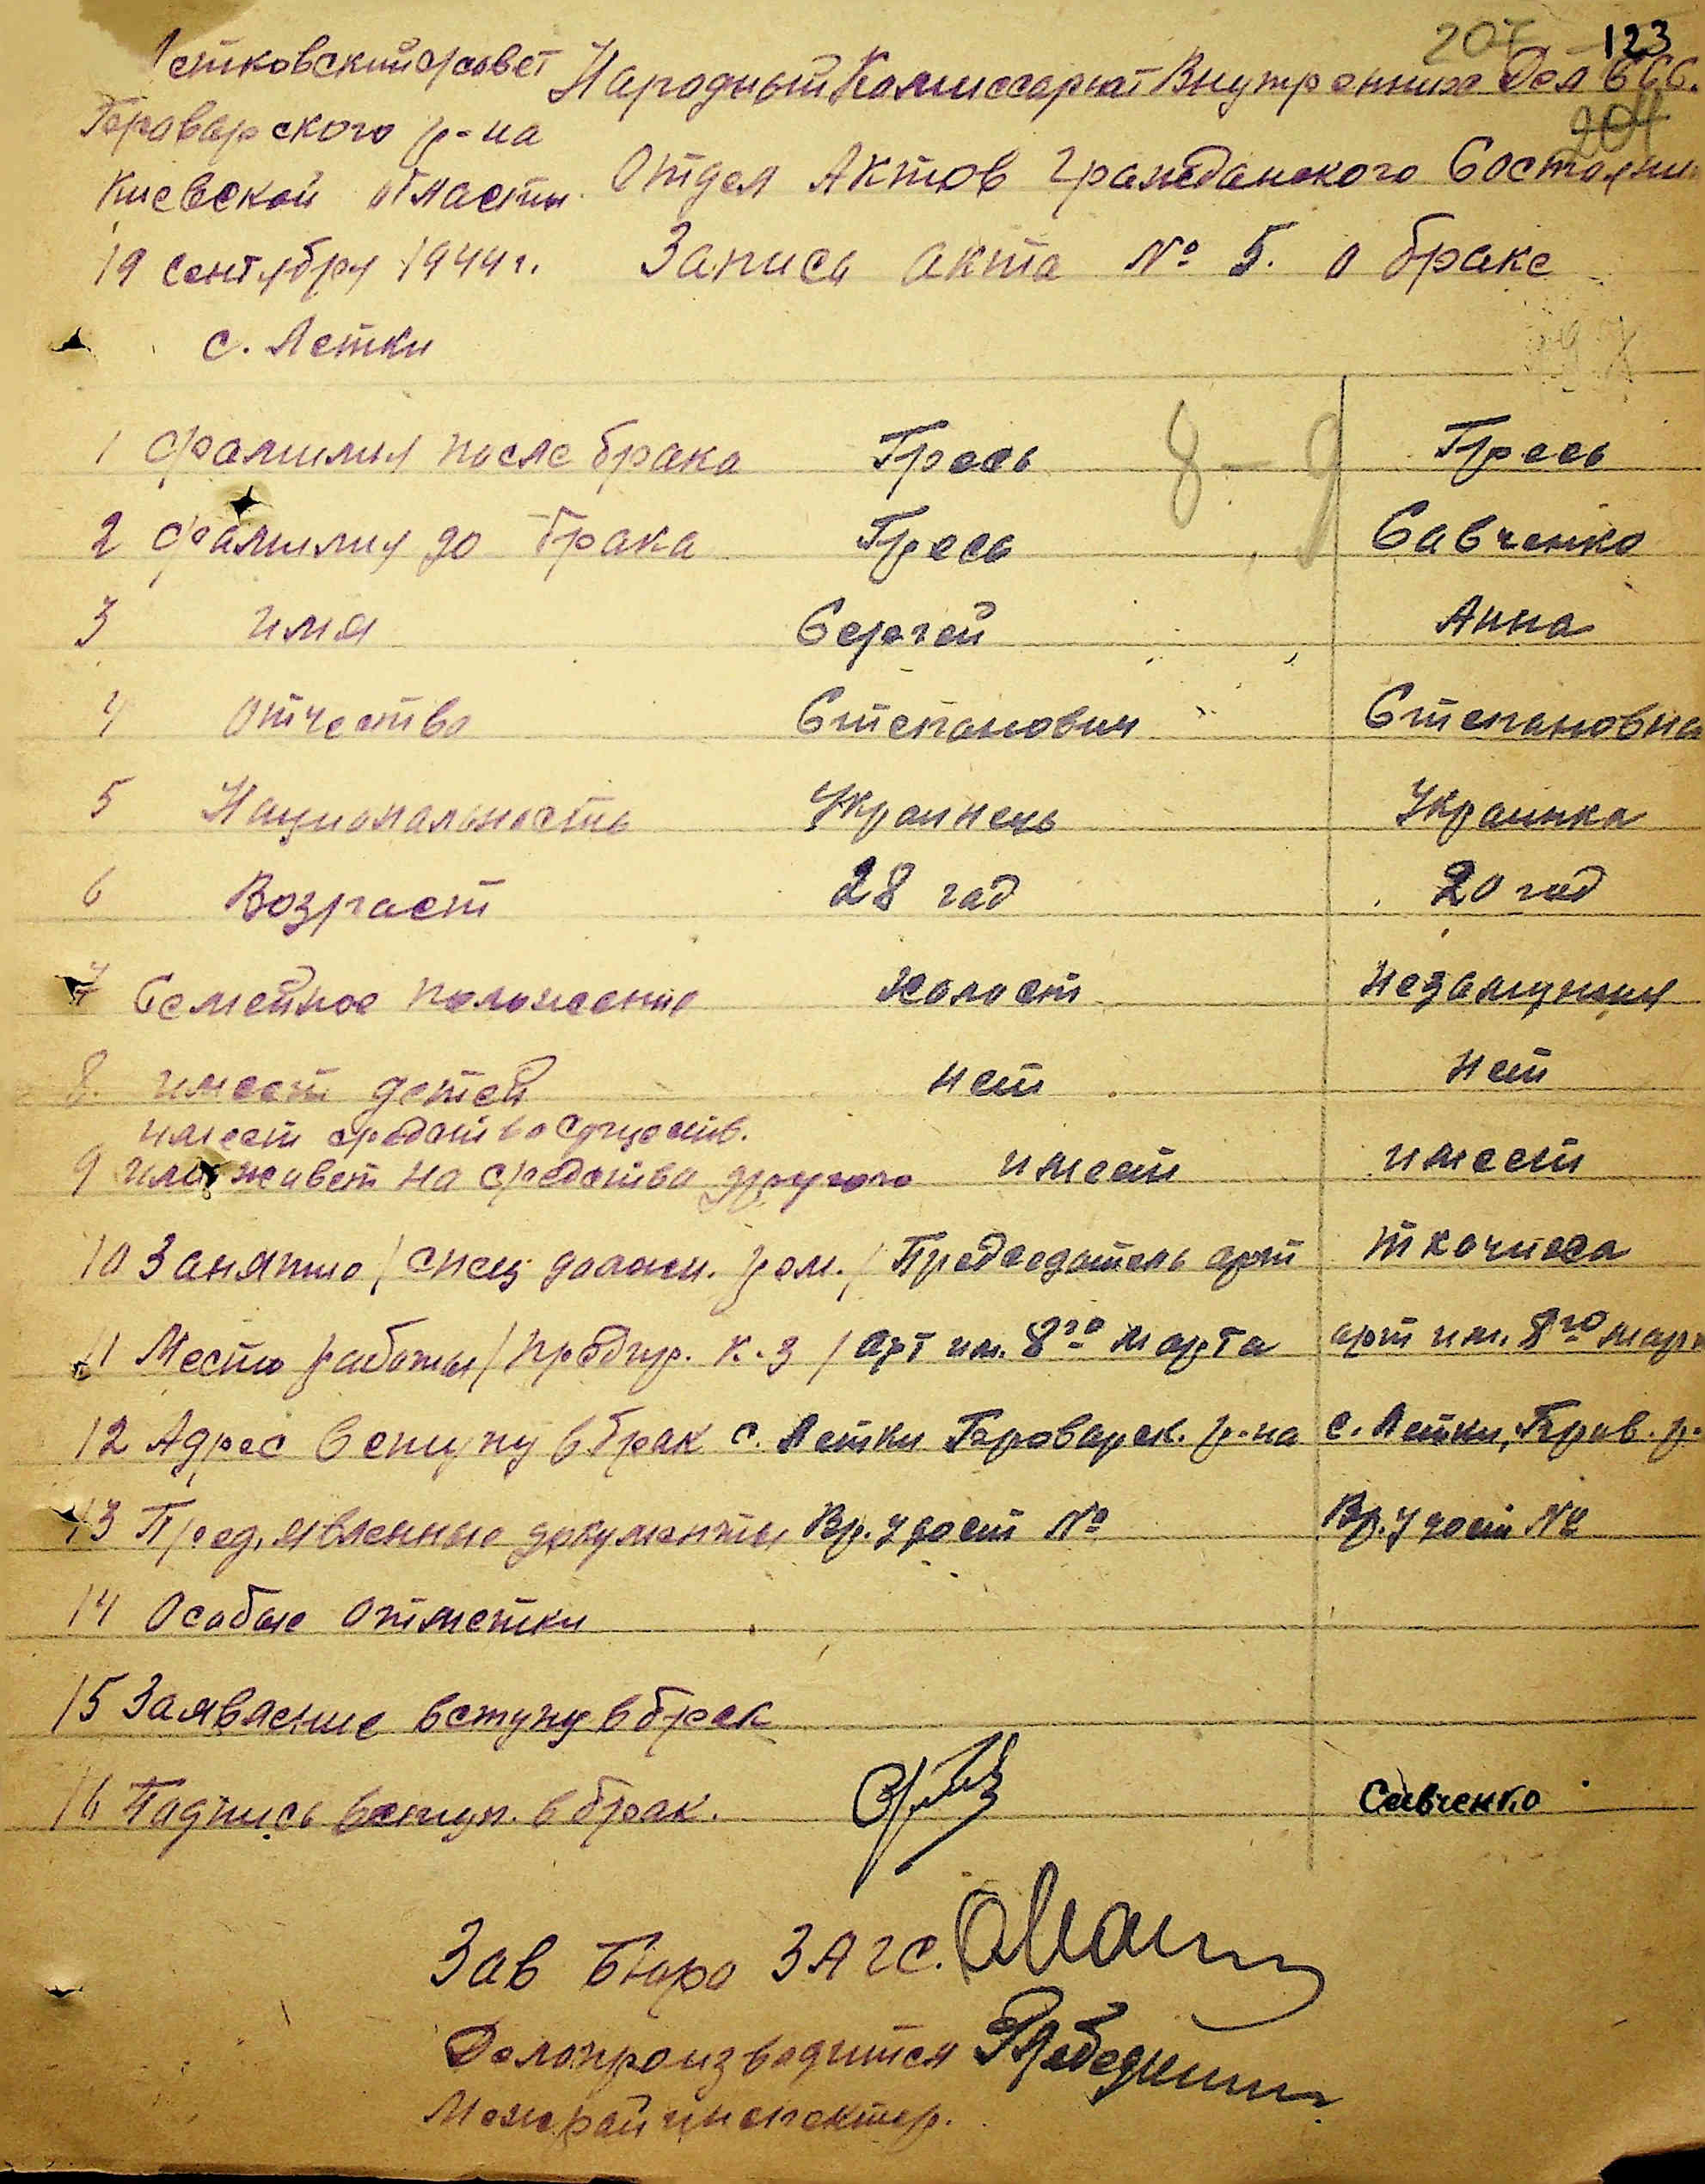 207 123
Летковский с/совет Народный Комиссариат Внутренних Дел ССС.
204
Броварского р-на
Киевской области. Отдел Актов Гражданского Состояни
19 сентября 1944 г. Запись акта № 5. о браке
с. Летки
1 Фамилия после брака Гресь 8-9 Гресь
2 Фамилия до брака Гресь Савченко
3 имя Сергей Анна
4 Отчество Степанович Степановна
5 Национальность Украинець Украинка
6 Возраст 28 год 20 год
7 Семейное положение холост незамужняя
8. имеет детей нет нет
имеет средств. к существ.
9 или живет на средства другого имеет имеет
10 Занятие / спец должн. рем. / Председатель арт ткачиха
11 Место работы / предпр. к.з / арт им. 8го марта арт им. 8го март
12 Адрес вступ в брак с. Летки Броварск. р-на с. Летки, Бров. р.
13 Пред,явленные документы Вр. удост № Вр. удост №
14 Особые отметки
15 Заявление вступ в брак
16 Подпись вступ. в брак. Савченко
Зав Бюро ЗАГС.
Делопроизводител
Межрайинспектор.